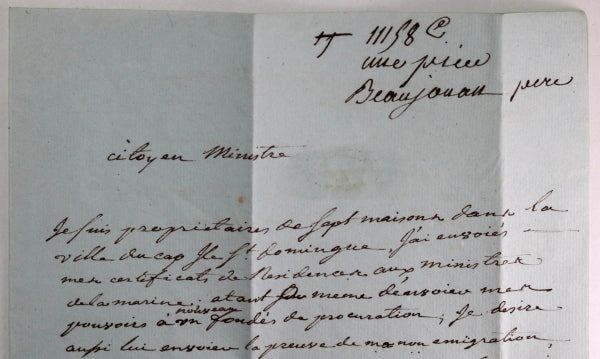 11158 C
une pièce
Beaujouan pere
citoyen Ministre
Je suis proprietaires de Sept maisons dans la
ville du cap Ile St. Domingue, J'ai envoiés
mes certificats de Residences aux ministres
de la marine; etant Sur meme denvoier mes
nouveau
pouvoirs à un fondés de procuration; Je desire
aussi lui envoier la preuve de ma non emigration,